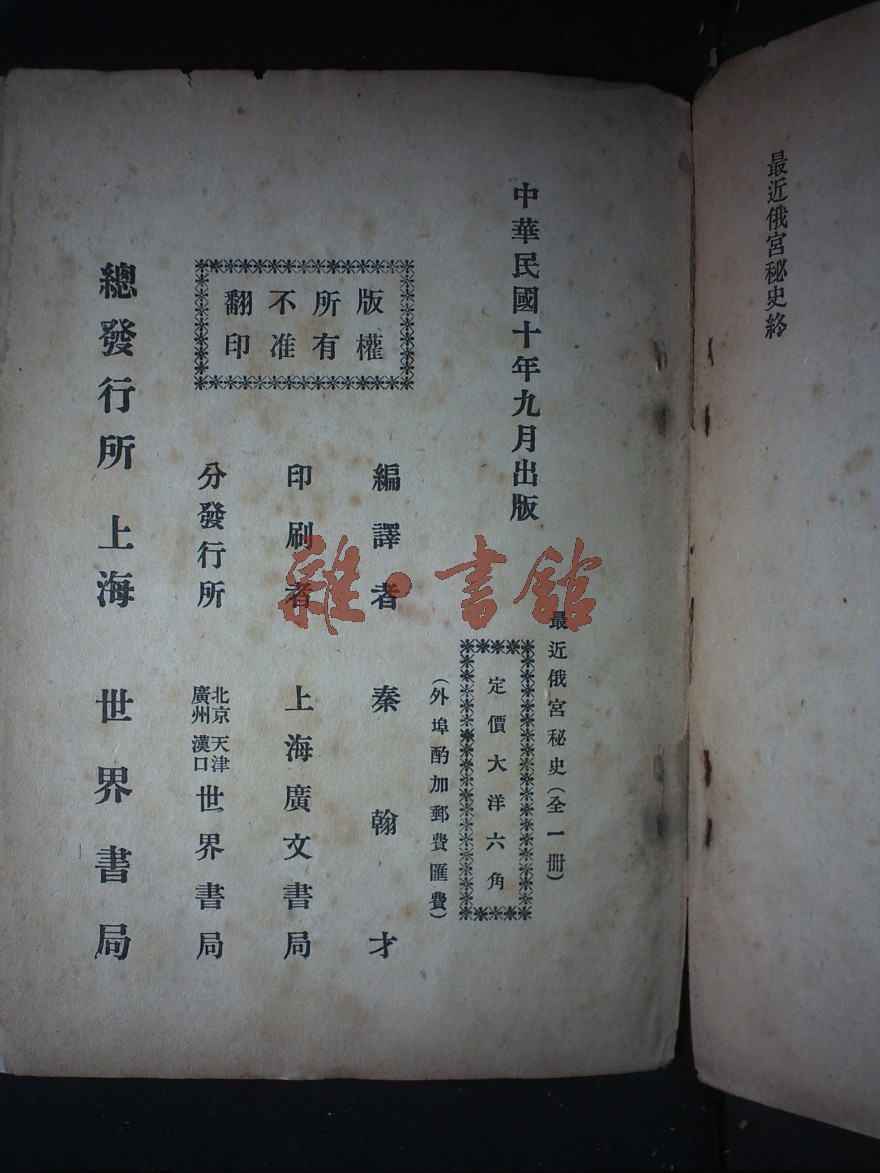 最近俄宮秘史終
中華民國十年九月出版
最近俄宮秘史(全一册)
定價大洋六角
(外埠酌加郵費匯費)
版權
所有
不准
翻印
編譯者 秦翰才
印刷者 上海廣文書局
分發行所 北京 天津 廣州 漢口 世界書局
總發行所 上海 世界書局
雜·書館